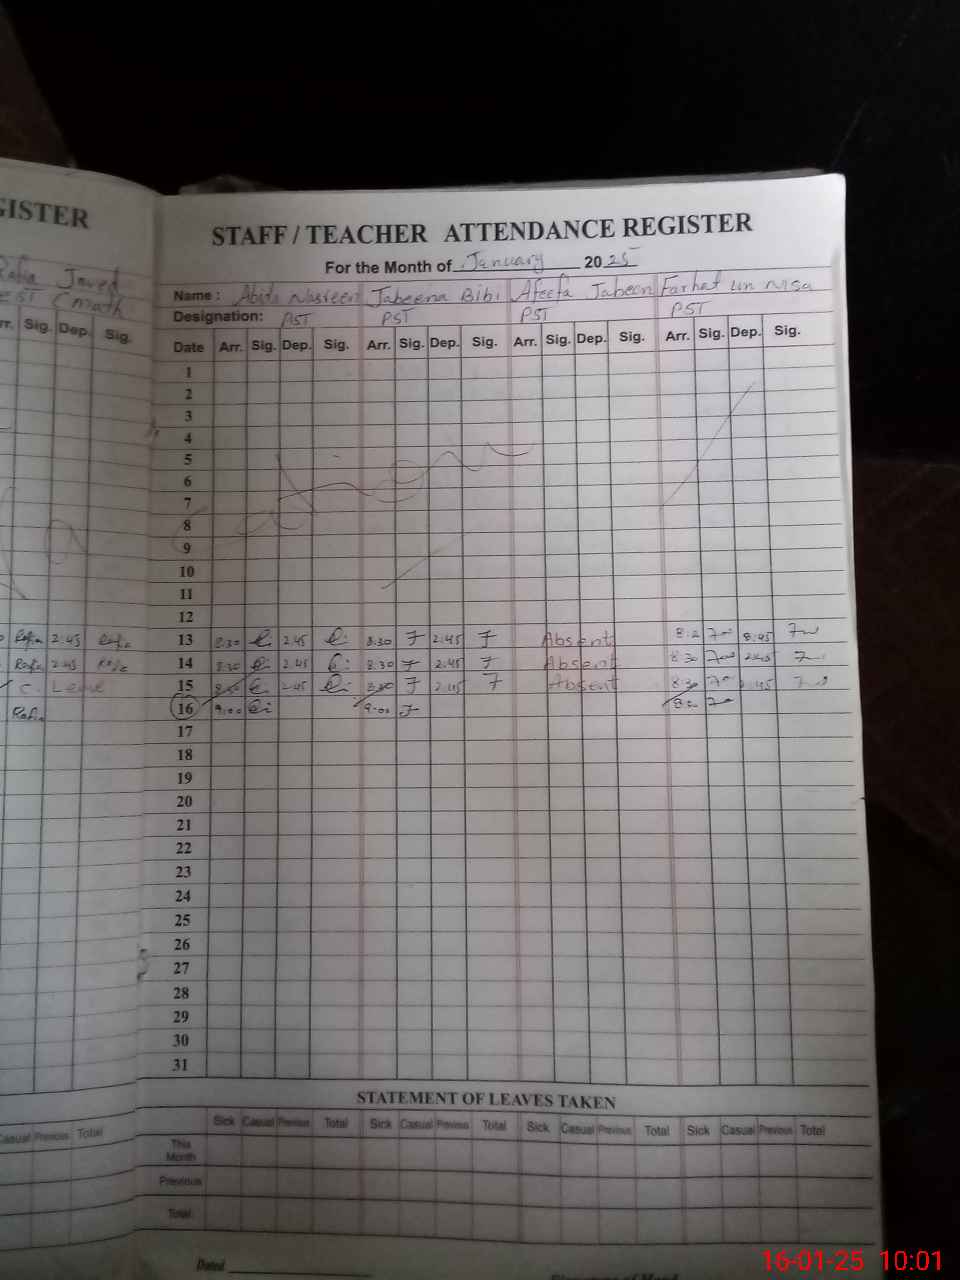 GISTER
STAFF / TEACHER ATTENDANCE REGISTER
For the Month of January 2025
Rafia Javed
Name : Abida Nasreen Jabeena Bibi Afeefa Jabeen Farhat un Nisa
EST (math
Designation: PST PST PST PST
rr. Sig. Dep. Sig.
Date Arr. Sig. Dep. Sig. Arr. Sig. Dep. Sig. Arr. Sig. Dep. Sig. Arr. Sig. Dep. Sig.
1
2
3
4
5
6
7
8
9
10
11
12
Rafia 2:45 Rafia 13 8:30 2:45 8:30 2:45 Absent
Rafia 2:45 Rafia 14 8:30 2:45 8:30 2:45 Absent 8:30 2:45
C. Leave 15 8:30 2:45 8:30 2:45 Absent 8:30 2:45
Rafia 16 9:00 9:00
17
18
19
20
21
22
23
24
25
26
27
28
29
30
31
STATEMENT OF LEAVES TAKEN
Casual Previous Total Sick Casual Previous Total Sick Casual Previous Total Sick Casual Previous Total Sick Casual Previous Total
This Month
Previous
Total
Dated
16-01-25 10:01